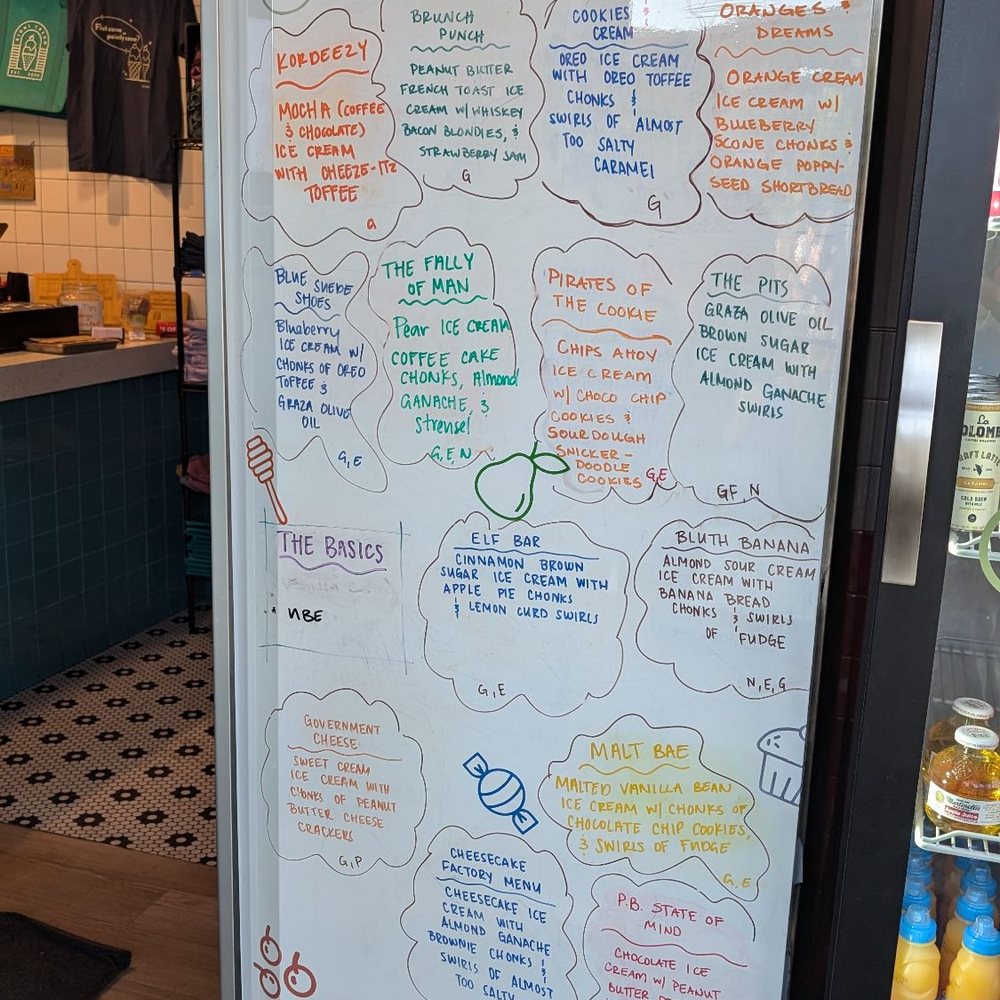 KORDEEZY
MOCHA (COFFEE
& CHOCOLATE)
ICE CREAM
WITH CHEEZE-ITZ
TOFFEE
G
BRUNCH
PUNCH
PEANUT BUTTER
FRENCH TOAST ICE
CREAM W/ WHISKEY
BACON BLONDIES, &
STRAWBERRY JAM
G
COOKIES &
CREAM
OREO ICE CREAM
WITH OREO TOFFEE
CHONKS &
SWIRLS OF ALMOST
TOO SALTY
CARAMEL
G
ORANGES &
DREAMS
ORANGE CREAM
ICE CREAM W/
BLUEBERRY
SCONE CHONKS &
ORANGE POPPY-
SEED SHORTBREAD
BLUE SUEDE
SHOES
Blueberry
ICE CREAM W/
CHONKS OF OREO
TOFFEE &
GRAZA OLIVE
OIL
G, E
THE FALLY
OF MAN
Pear ICE CREAM
COFFEE CAKE
CHONKS, Almond
GANACHE, &
Streusel
G, E, N
PIRATES OF
THE COOKIE
CHIPS AHOY
ICE CREAM
W/ CHOCO CHIP
COOKIES &
SOURDOUGH
SNICKER-
DOODLE
COOKIES
G,E
THE PITS
GRAZA OLIVE OIL
BROWN SUGAR
ICE CREAM WITH
ALMOND GANACHE
SWIRLS
GF, N
THE BASICS
• NBE
ELF BAR
CINNAMON BROWN
SUGAR ICE CREAM WITH
APPLE PIE CHONKS
& LEMON CURD SWIRLS
G, E
BLUTH BANANA
ALMOND SOUR CREAM
ICE CREAM WITH
BANANA BREAD
CHONKS & SWIRLS
OF FUDGE
N, E, G
GOVERNMENT
CHEESE
SWEET CREAM
ICE CREAM WITH
CHONKS OF PEANUT
BUTTER CHEESE
CRACKERS
G, P
MALT BAE
MALTED VANILLA BEAN
ICE CREAM W/ CHONKS OF
CHOCOLATE CHIP COOKIES,
& SWIRLS OF FUDGE
G, E
CHEESECAKE
FACTORY MENU
CHEESECAKE ICE
CREAM WITH
ALMOND GANACHE
BROWNIE CHONKS &
SWIRLS OF ALMOST
TOO SALTY
P.B. STATE OF
MIND
CHOCOLATE ICE
CREAM W/ PEANUT
BUTTER
La
COLOMBE
DRAFT LATTE
CARAMEL
COLD BREW
Martinelli's
TIPS